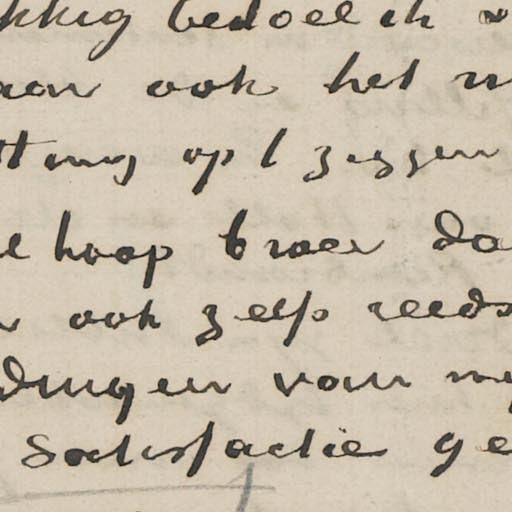 kkig bedoel ik
aar ook het
ting op t zeggen
hoop broer da
ook zelf reeds
dingen van my
satisfactie ge